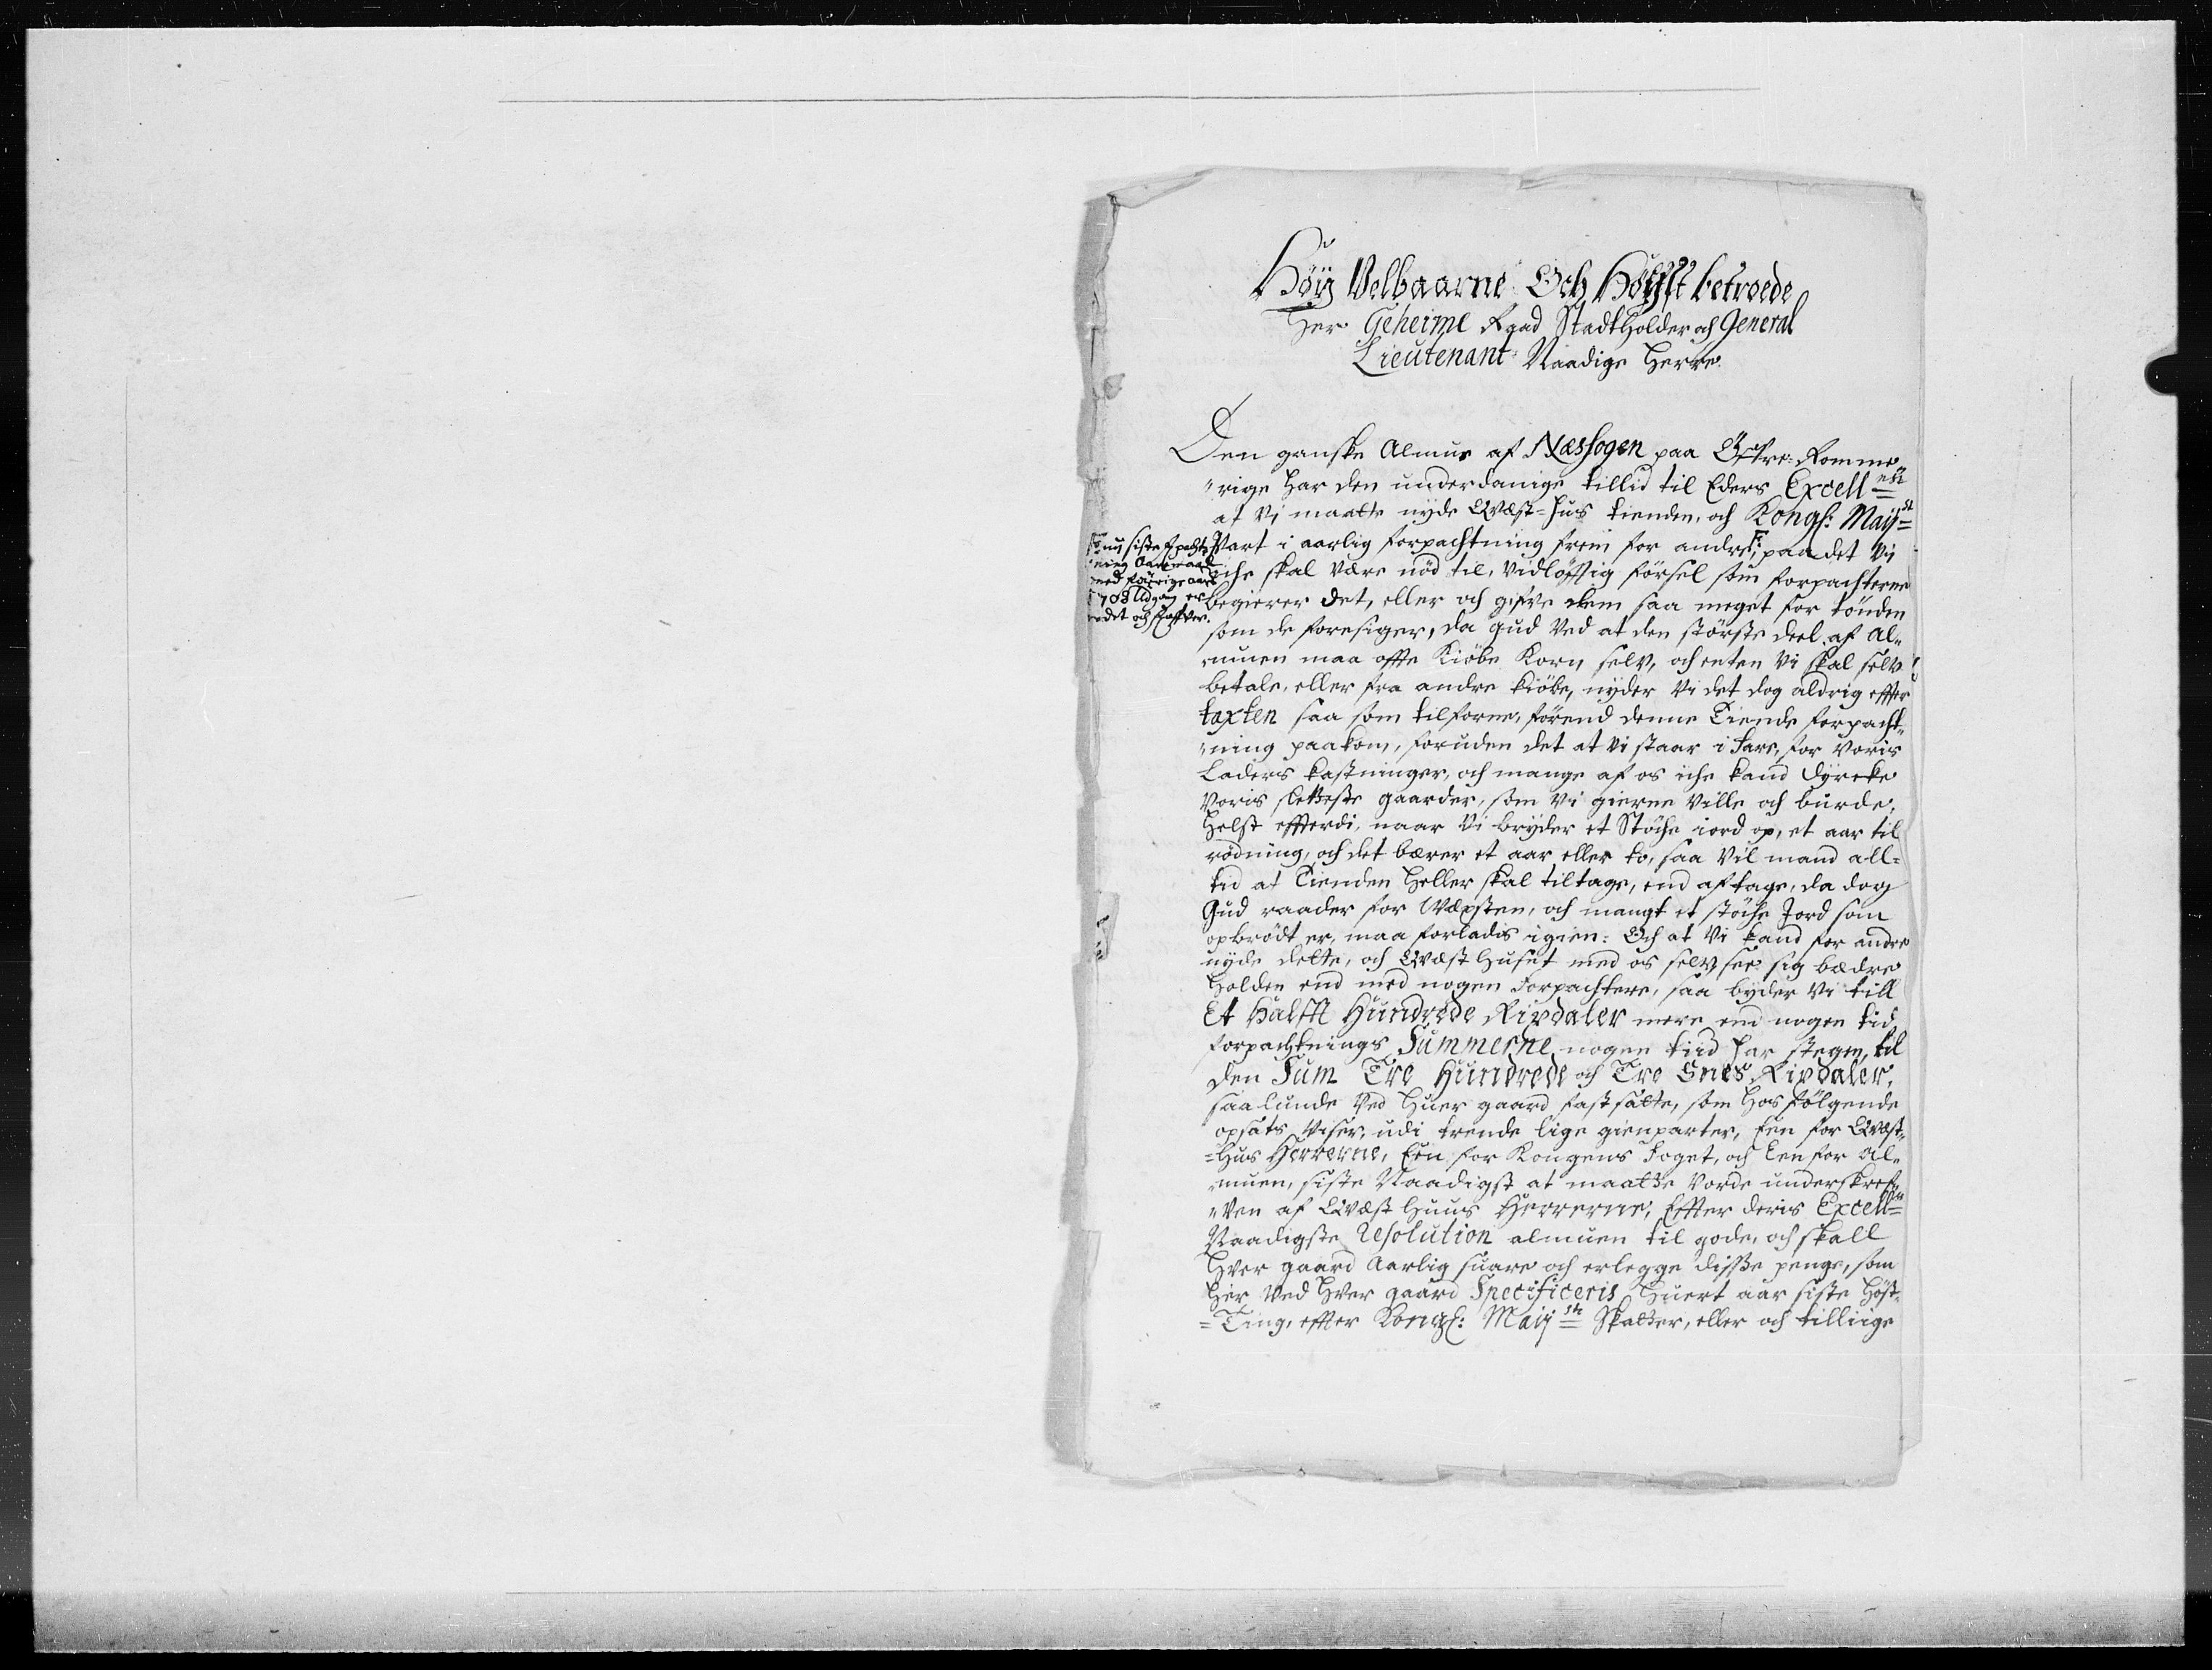 Höy Velbaarne Och Höyst betroede
Her Geheime Raad Stadtholder och General
Lieutenant Naadige Herre
Den ganske Almue af Næssogen paa Öfvre Romme
"rige har den underdanige tillid til Eders Excell
at Vi maatte nyde Qvæst-hus tienden, och Kongl: Maÿ
Part i aarlig forpachtning frem for andre; paa det Vi
iche skal være nöd til, vidlöftig försel som forpachterne
begierer det, eller och gifve dem saa meget for tönden
som de foresiger, da gud Ved at den störste deel af Al"
muen maa offte Kiöbe Korn selv, och enten Vi skal selv
betale, eller fra andre kiöbe, nyder Vi det dog aldrig effter
taxten saa som tilforne, förend denne Tiende forpacht"
"ning paakom, foruden det at Vi staar i fare, for voris
Laders kastninger, och mange af os iche kand dyrcke
Voris sletteste gaarder, som Vi gierne Ville och burde,
helst efterdi, naar Vi bryder et Stöche iord op, et aar til
rödning, och det bærer et aar eller to, saa Vil mand all=
tid at Tienden heller skal tiltage, end aftage, da dog
Gud raader for Væxten, och mangt et stöche Jord som
opbrödt er, maa forladis igien: Och at Vi kand for andre
nyde dette, och Qvæsthuset med os selv see sig bædre
holden end med nogen Forpachtere, saa byder Vi till
Et halfft Hundrede Rixdaler mere end nogen tid
forpachtnings Summerne nogen tiid har stegen, til
den Sum Tre Hundrede och Tre Snes Rixdaler,
saalunde Ved Huer gaard fastsatte, som hos fölgende
opsats Viser, udi trende lige gienparter, Een for Qvæst"
=Hus Herrerne, Een for Kongens Foget, och Een for al"
muen, siste Naadigst at maatte Vorde underskref"
"ven af Qvæst Huus Herrerne, Effter deris Excell
Naadigste Resolution almuen til gode, och skall
Hver gaard Aarlig suare och erlegge disse penge, som
her Ved Hver gaard Specificeris Huert aar siste Höst-
=Ting, effter Kongl: Maÿ Skatter, eller och tilliige
nu siste
med
708 Udgang er